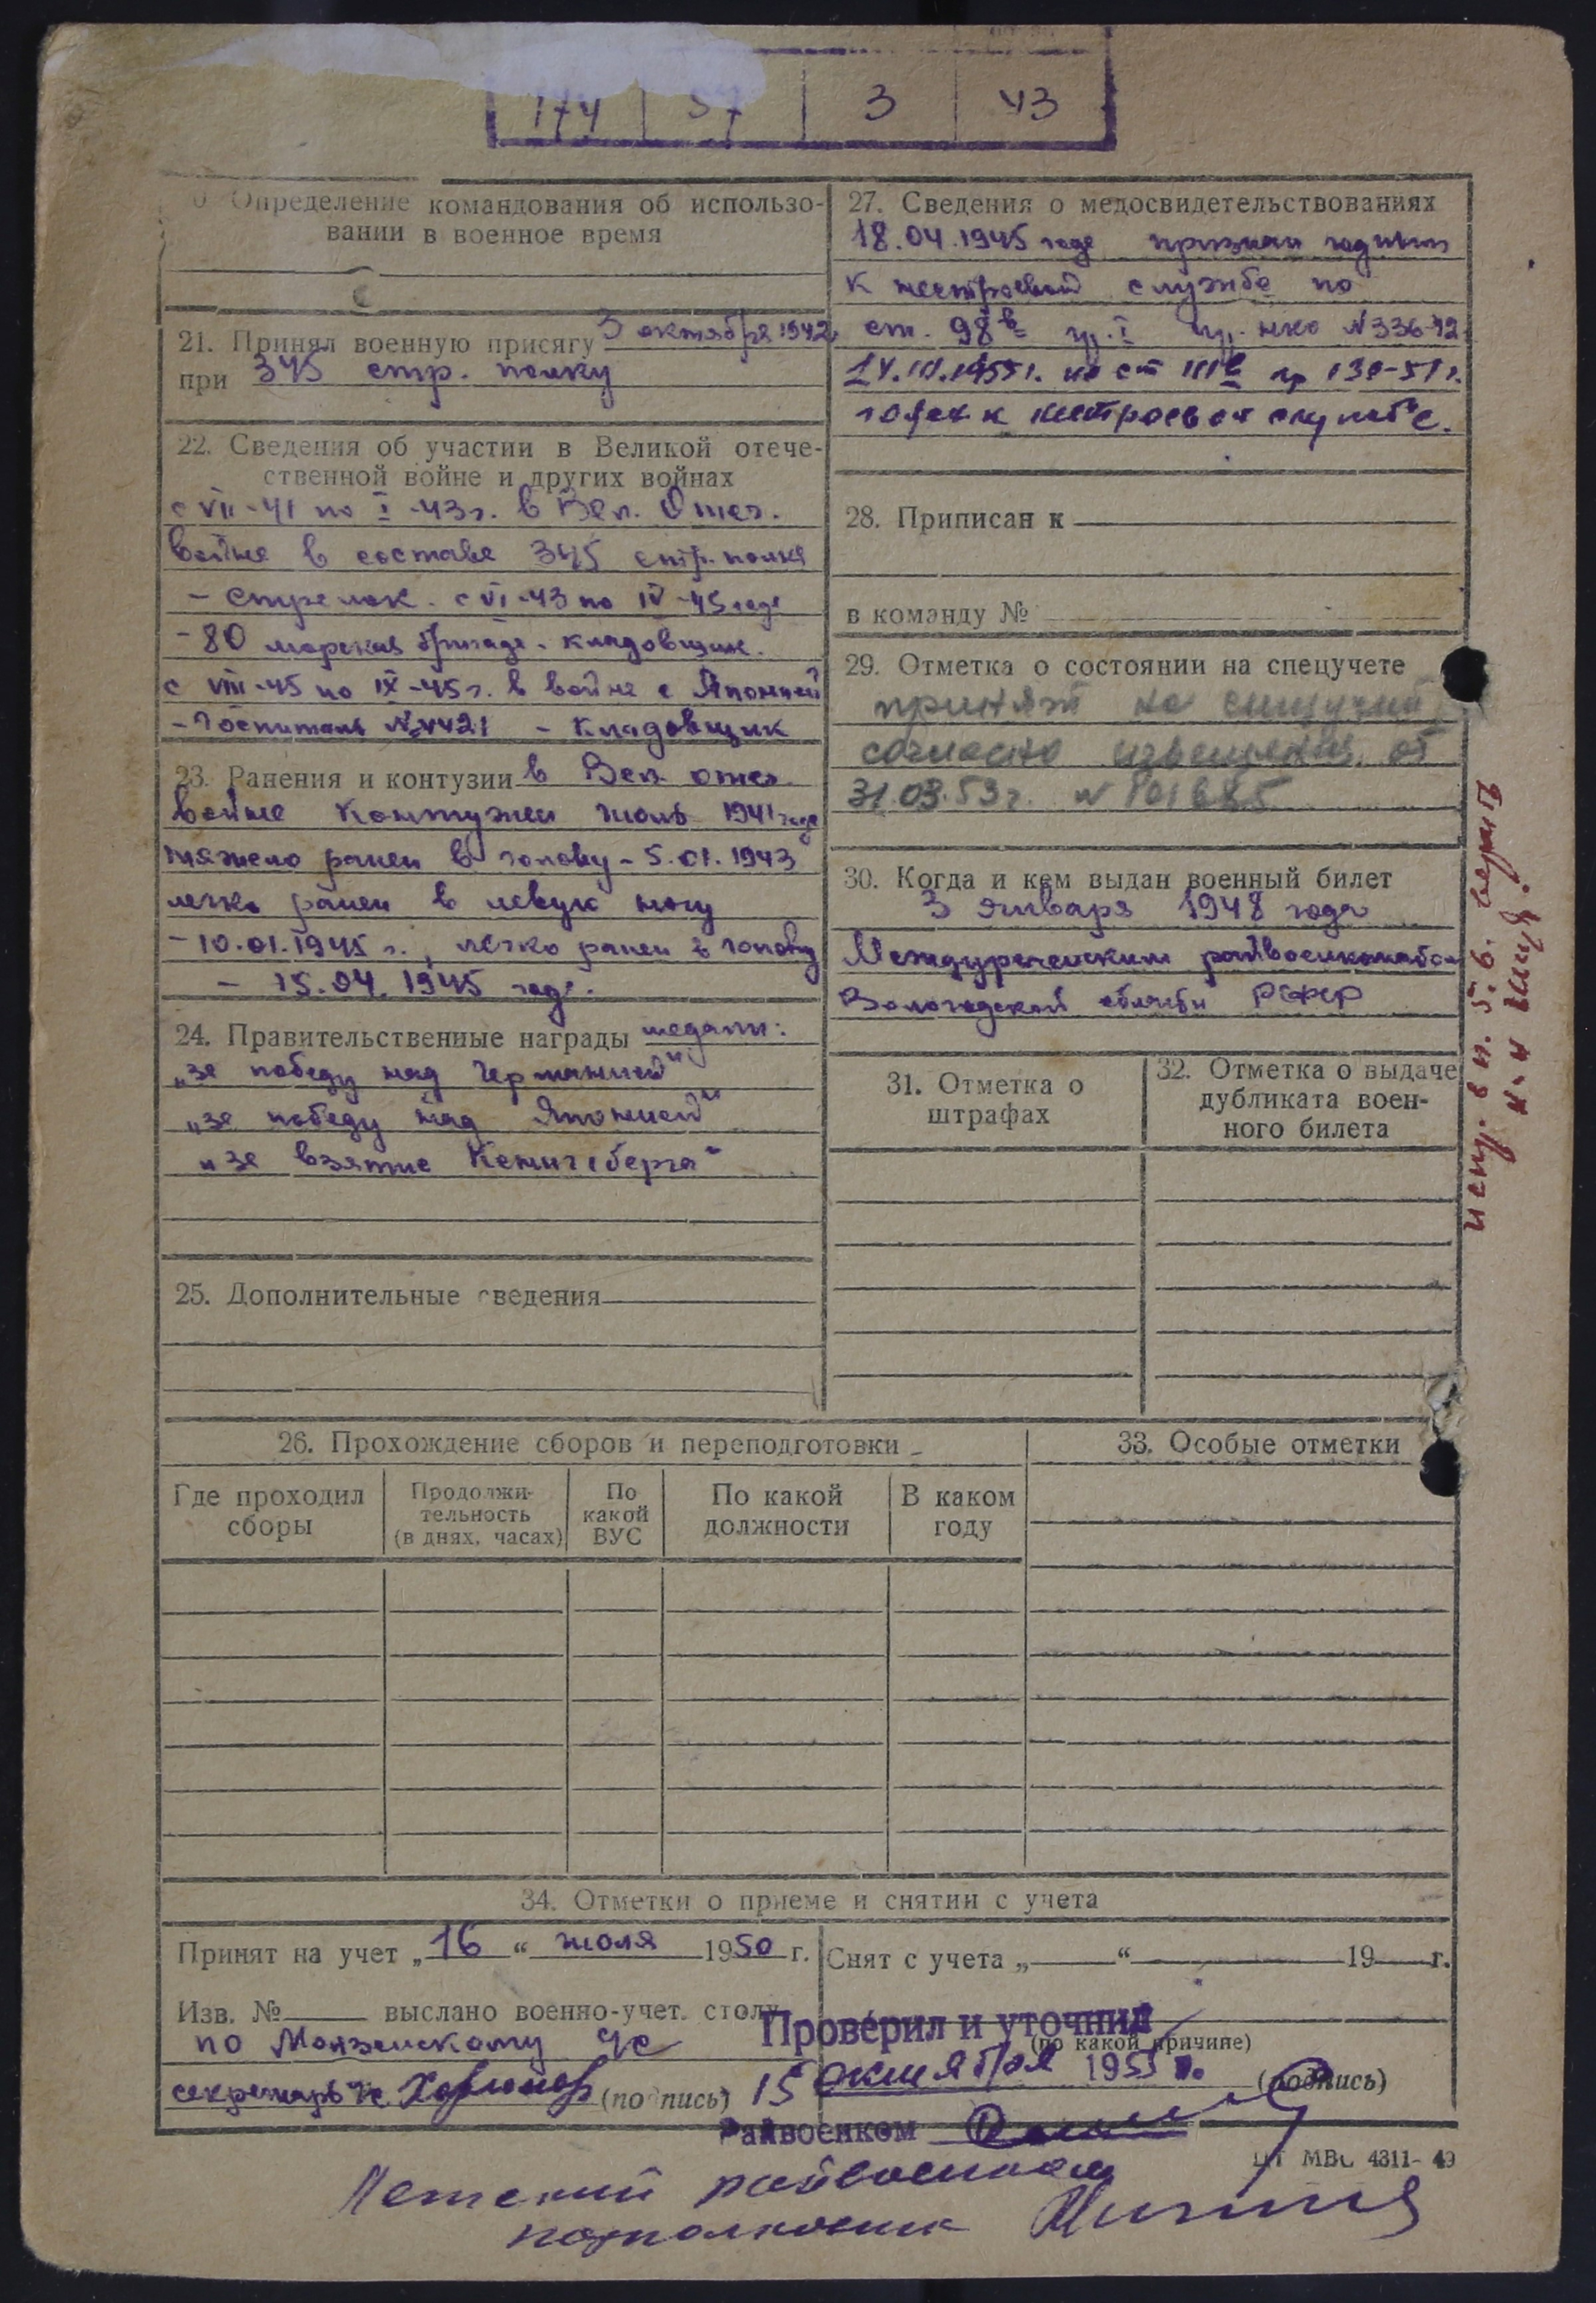 174 | 37 | 3 | 43
0. Определение командования об использо-
вании в военное время
21. Принял военную присягу 3 октября 1942
при 345 стр. полку
22. Сведения об участии в Великой отече-
ственной войне и других войнах
с VII-41 по I-43г. в Вел. Отеч.
войне в составе 345 стр. полка
- стрелок. с VI-43 по IV-45 года
- 80 морская бригада. кладовщик.
с VIII-45 по IX-45г. в войне с Японией
- Госпиталь № 4421 - кладовщик
23. Ранения и контузии в Вел. отеч.
войне контужен июль 1941 года
тяжело ранен в голову - 5.01.1943
легко ранен в левую ногу
- 10.01.1945 г., легко ранен в голову
- 15.04.1945 года.
24. Правительственные награды медали:
„за победу над Германией"
„за победу над Японией"
„за взятие Кенигсберга"
25. Дополнительные сведения
27. Сведения о медосвидетельствованиях
18.04.1945 года признан годным
к нестроевой службе по
ст. 98в гр. I пр. нко N 336-42.
1955г. по ст IIIв пр 130-51г.
годен к нестроевой службе.
28. Приписан к
в команду №
29. Отметка о состоянии на спецучете
принят на спецучет
согласно извещения от
31.03.53г. N 101685
30. Когда и кем выдан военный билет
3 января 1948 года
Междуреченским райвоенкоматом
Вологодской области РСФСР
31. Отметка о
штрафах
32. Отметка о выдаче
дубликата воен-
ного билета
испр. в п. 5.6. верить
26. Прохождение сборов и переподготовки
Где проходил
сборы
Продолжи-
тельность
(в днях, часах)
По
какой
ВУС
По какой
должности
В каком
году
33. Особые отметки
34. Отметки о приеме и снятии с учета
Принят на учет „16" июля 1950 г.
Снят с учета „ " 19 г.
Изв. № выслано военно-учет. столу
по Монзенскому ЧС
секретарь ЧС (подпись)
Проверил и уточнил
(по какой причине)
15 октября 1955 г. (подпись)
Райвоенком
МВС 4311-49
райвоенком
подполковник